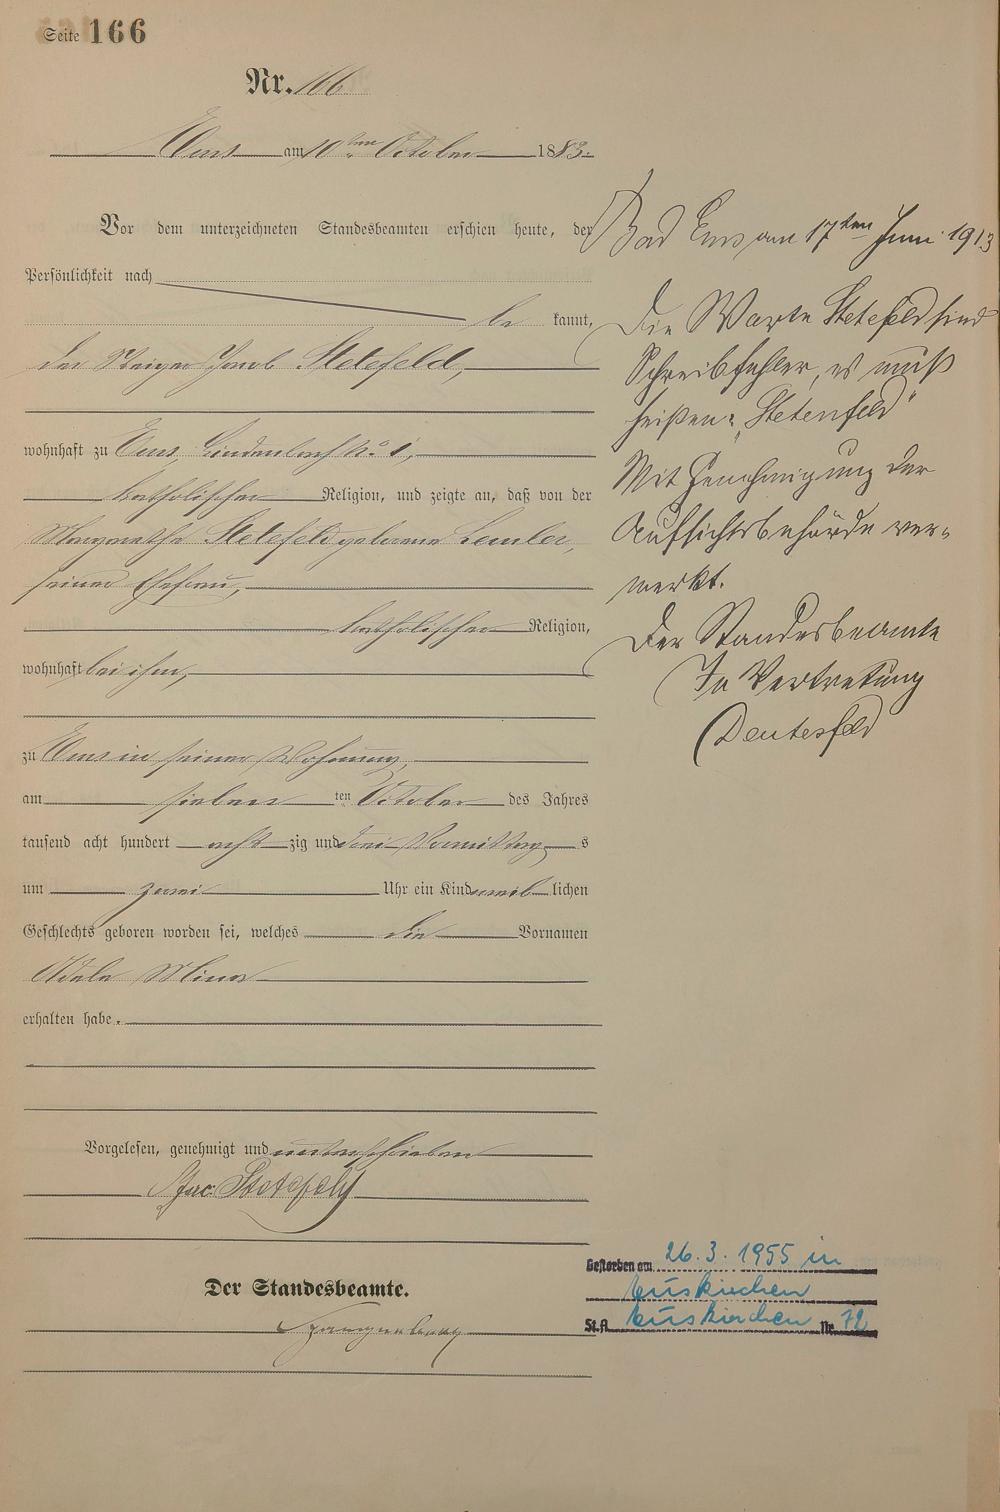 Seite 166
Nr. 166
Ems am 10ten October 1883.
Vor dem unterzeichneten Standesbeamten erschien heute, der
Persönlichkeit nach
be kannt,
der Steiger Jacob Stetefeld,
wohnhaft zu Ems, Lindenbach No. 1,
katholischer Religion, und zeigte an, daß von der
Margaretha Stetefeld geborene Lemler,
seiner Ehefrau,
katholischer Religion,
wohnhaft bei ihm,
zu Ems in seiner Wohnung,
am sieben ten October des Jahres
tausend acht hundert acht zig und drei Vormittag s
um zwei Uhr ein Kind weib lichen
Geschlechts geboren worden sei, welches die Vornamen
Adele Mina
erhalten habe.
Vorgelesen, genehmigt und unterschrieben
Jac. Stetefeld
Der Standesbeamte.
Bad Ems am 17ten Juni 1913
Die Worte Stetefeld sind
Schreibfehler, es muß
heißen: „Stetenfeld"
Mit Genehmigung der
Aufsichtsbehörde ver-
merkt.
Der Standesbeamte
In Vertretung
Gestorben am 26.3.1955 in
Euskirchen
St.A. Euskirchen Nr. 72